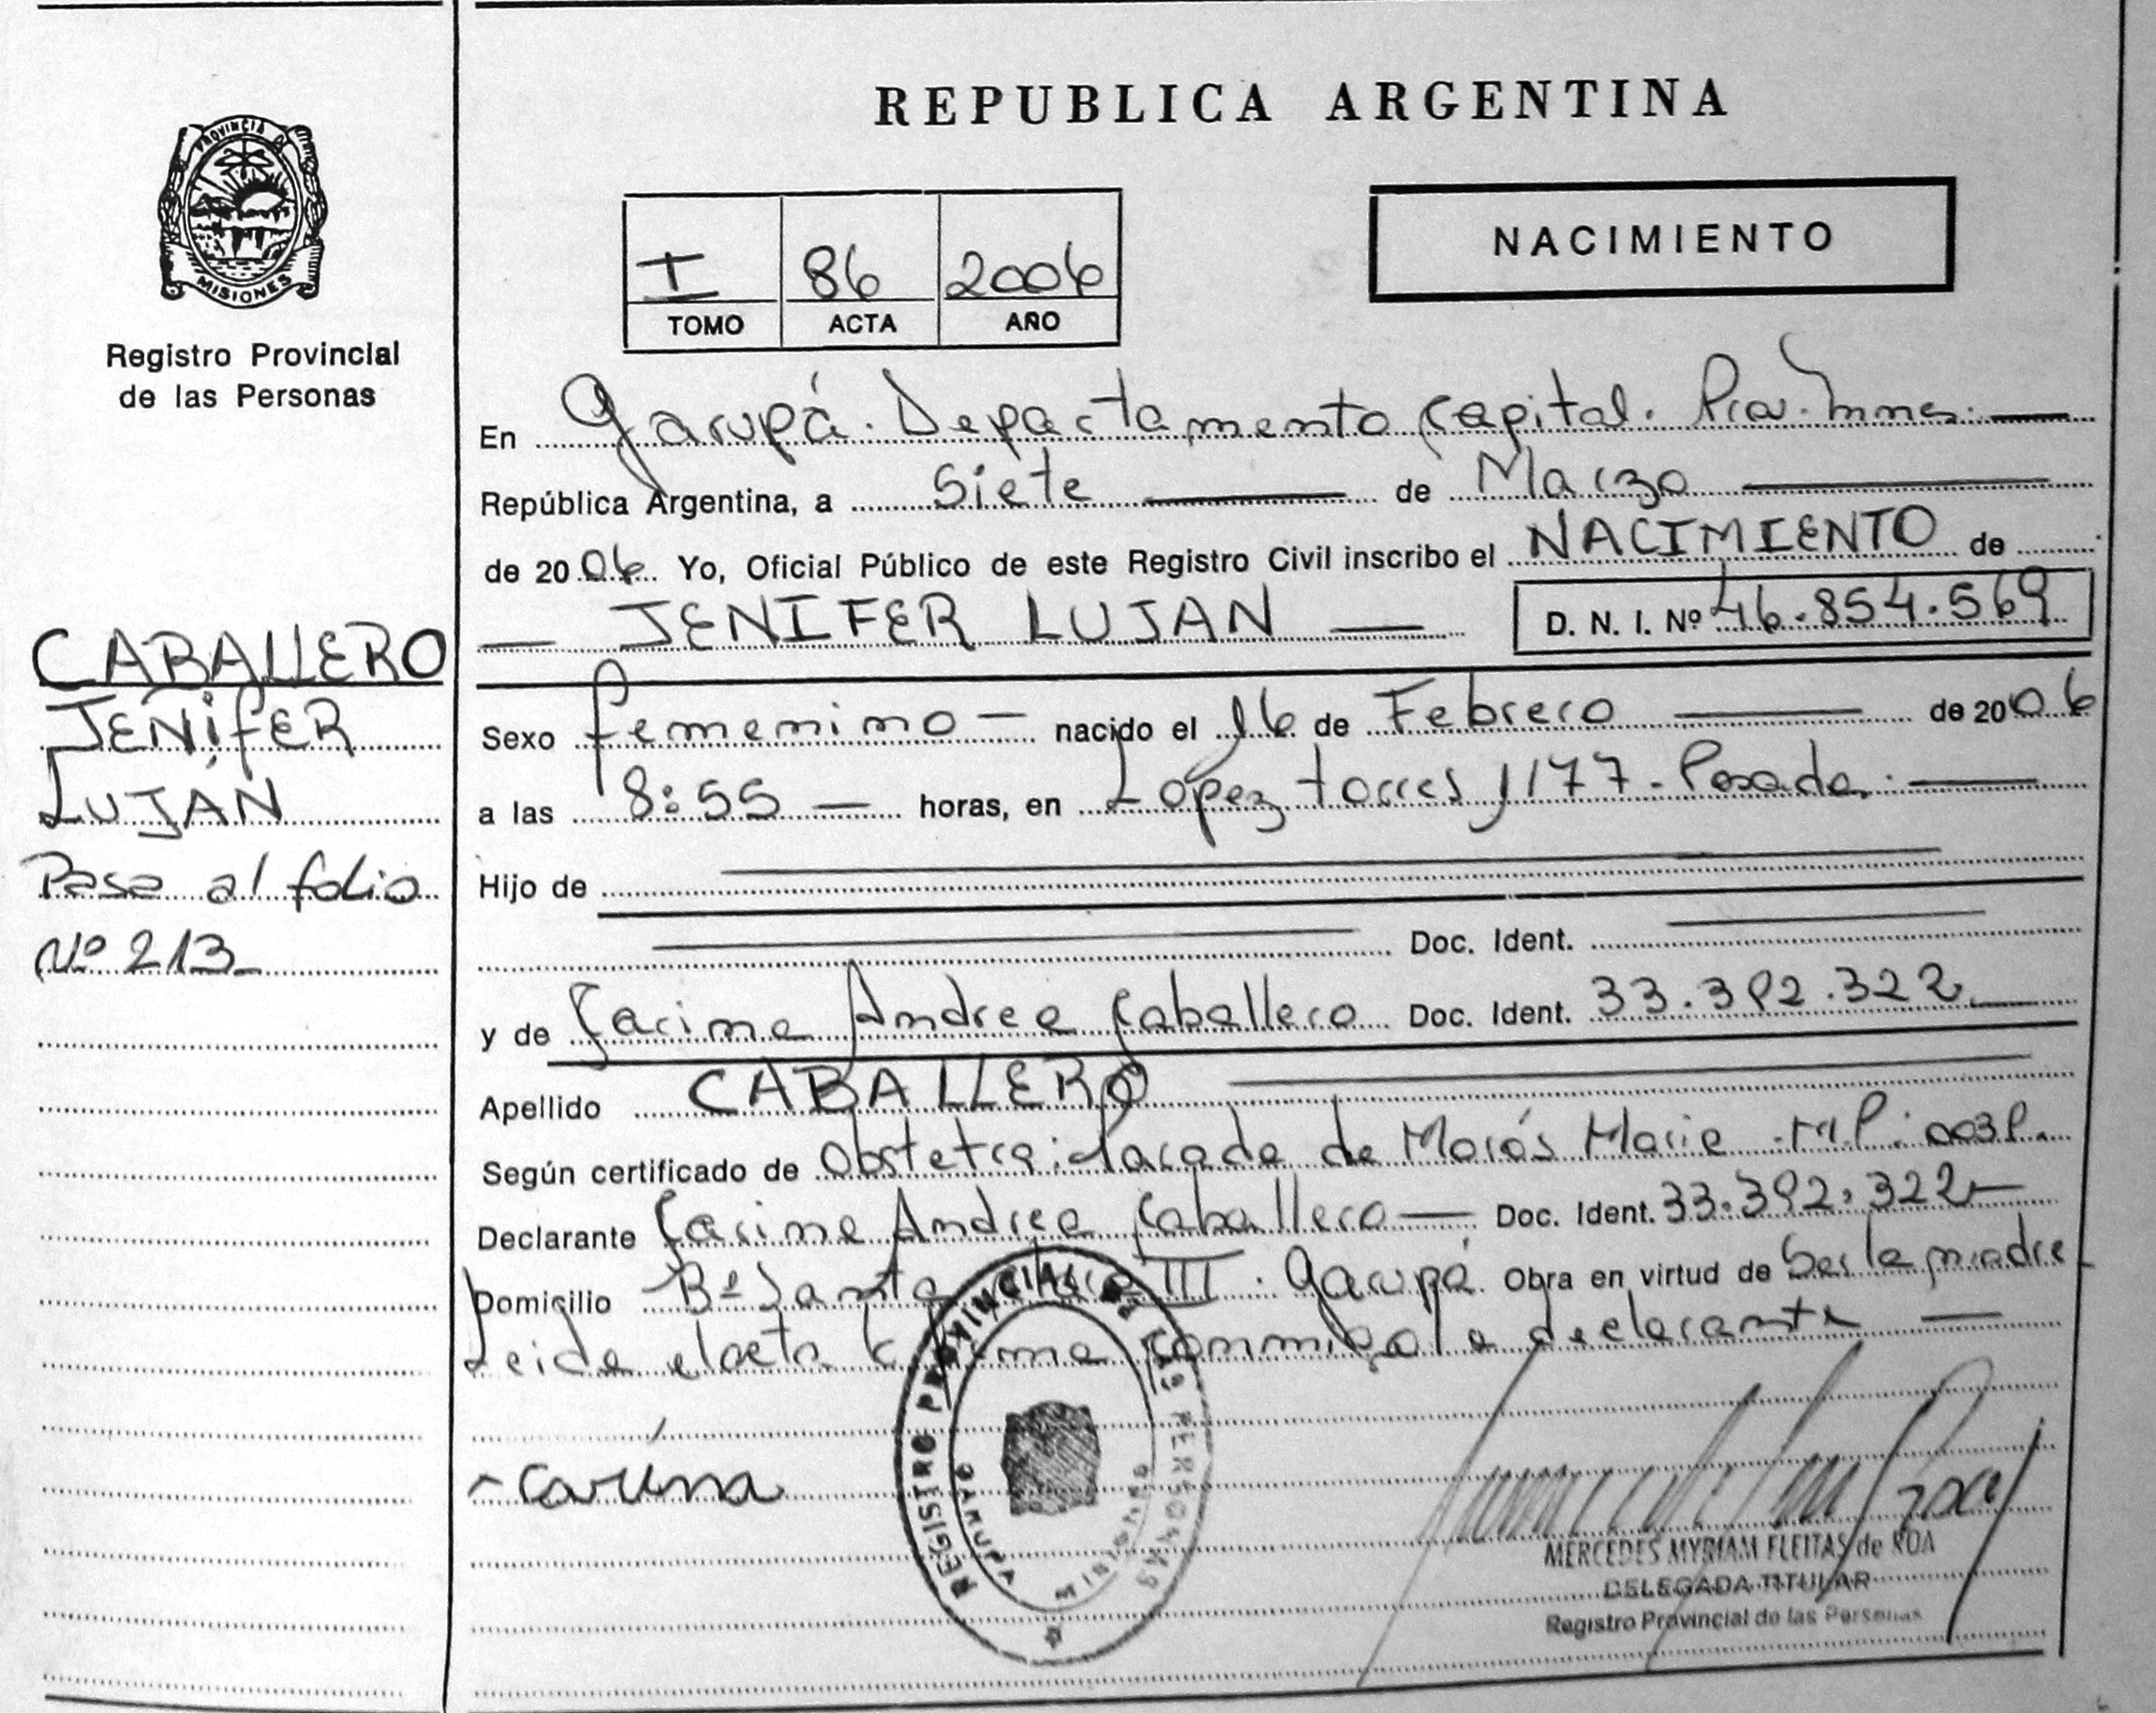 REPUBLICA ARGENTINA
PROVINCIA DE
MISIONES
Registro Provincial
de las Personas
NACIMIENTO
I 86 2006
TOMO ACTA AÑO
En Garupá. Departamento Capital. Prov. Mnes.
República Argentina, a Siete de Marzo
de 2006 Yo, Oficial Público de este Registro Civil inscribo el NACIMIENTO de
JENIFER LUJAN D. N. I. Nº 46.854.569
CABALLERO
JENIFER
LUJÁN
Pasa al folio
Nº 213
Sexo femenino nacido el 16 de Febrero de 2006
a las 8:55 horas, en López torres 1177 - Posadas.
Hijo de
Doc. Ident.
y de Carina Andrea Caballero Doc. Ident. 33.392.322
Apellido CABALLERO
Según certificado de Obstetra: de Marie M.P:
Declarante Carina Andrea Caballero Doc. Ident. 33.392.322
Domicilio Bº Santa III. Garupá Obra en virtud de Ser la madre
Leida el acta firma conmigo la declarante
Carina
REGISTRO PROVINCIAL DE LAS PERSONAS
GARUPA MISIONES
MERCEDES MYRIAM FLEITAS de ROA
DELEGADA TITULAR
Registro Provincial de las Personas